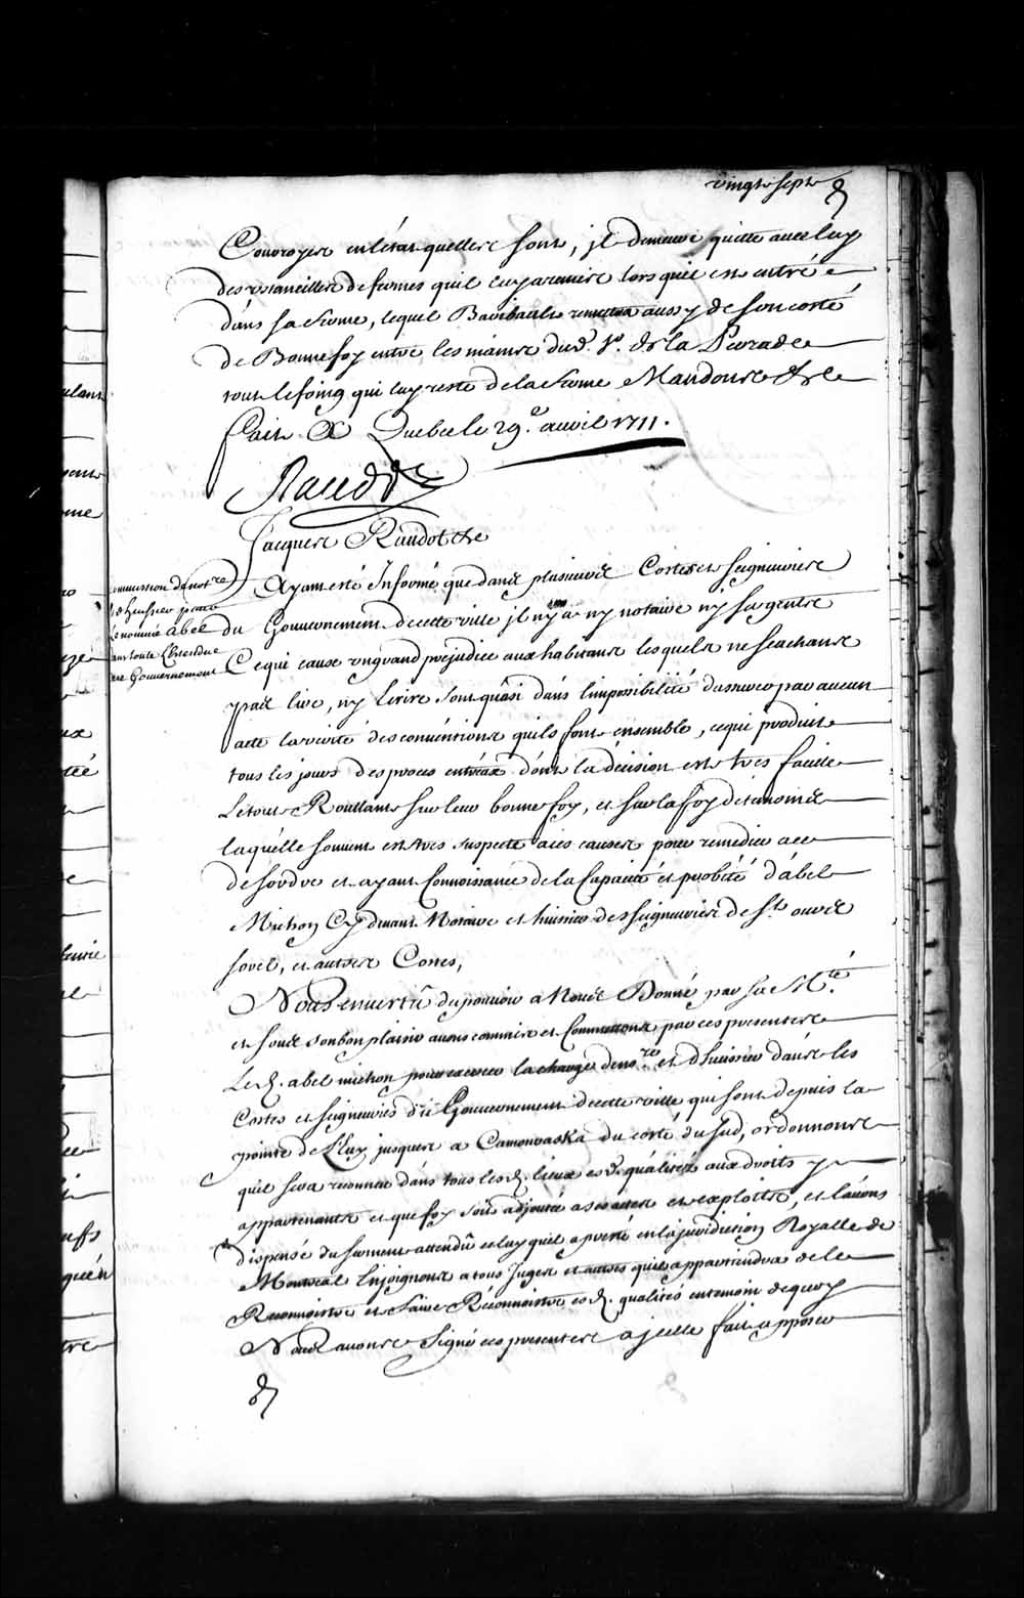 vingt sept
Couroyes en l'état quelles sont, il demeure quitte avec luy
des ustancilles de fermes quil luy a remise lors quil est entré
dans sa ferme, lequel Baribault remettra aussy de son costé
de Bonne foy entre les mains dud. Sr. de la Perade
tout le foing qui luy reste de la ferme Mandons &c
fait a Quebec le 29e. avril 1711.
Raudot
Jacques Raudot &c
commission de notre
d'huissier pour
le nommé abel
dans toute l'Etendue
Gouvernement
Ayant esté Informé que dans plusieurs Costes et seigneuries
du Gouvernement de cette ville il ny a ny notaire ny sergentre
Ce qui cause un grand prejudice aux habitans lesquels ne scachans
pas lire, ny Ecrire sont quasi dans l'impossibilité d'assurer par aucun
acte la verité des conventions quils font ensemble, ce qui produit
tous les jours des proces entreux dont la decision est tres facille
Estant Roullants sur leur bonne foy, et sur la foy de temoins
laquelle souvent est tres suspecte a ces causes pour remedier a ce
desordre et ayant Connoissance de la Capacité et probité d'abel
Michon Cy devant Notaire et huissier des seigneuries de St. ours
sorel, et autres Costes,
Nous en vertu du pouvoir a Nous Donné par sa Mté.
et sous son bon plaisir avons commis et Commettons par ces presentes
Led. abel michon pour exercer la charge de nore. et d'huissier dans les
Costes et seigneuries du Gouvernement de cette ville qui sont depuis la
pointe de Levy jusques a Camouraska du costé du sud, ordonnons
quil sera reconnu dans tous lesd. lieux esd. qualités aux droits y
appartenants et que foy soit adjoutée a ses actes et exploits, et l'avons
dispensé du serment attendu celuy quil a presté en la juridiction Royalle de
Montreal Enjoignons a tous Juges et autres quil appartiendra de le
Reconnoistre et faire Reconnoistre esd. qualités en temoin de quoy
Nous avons signé ces presentes a jcelle fait apposer